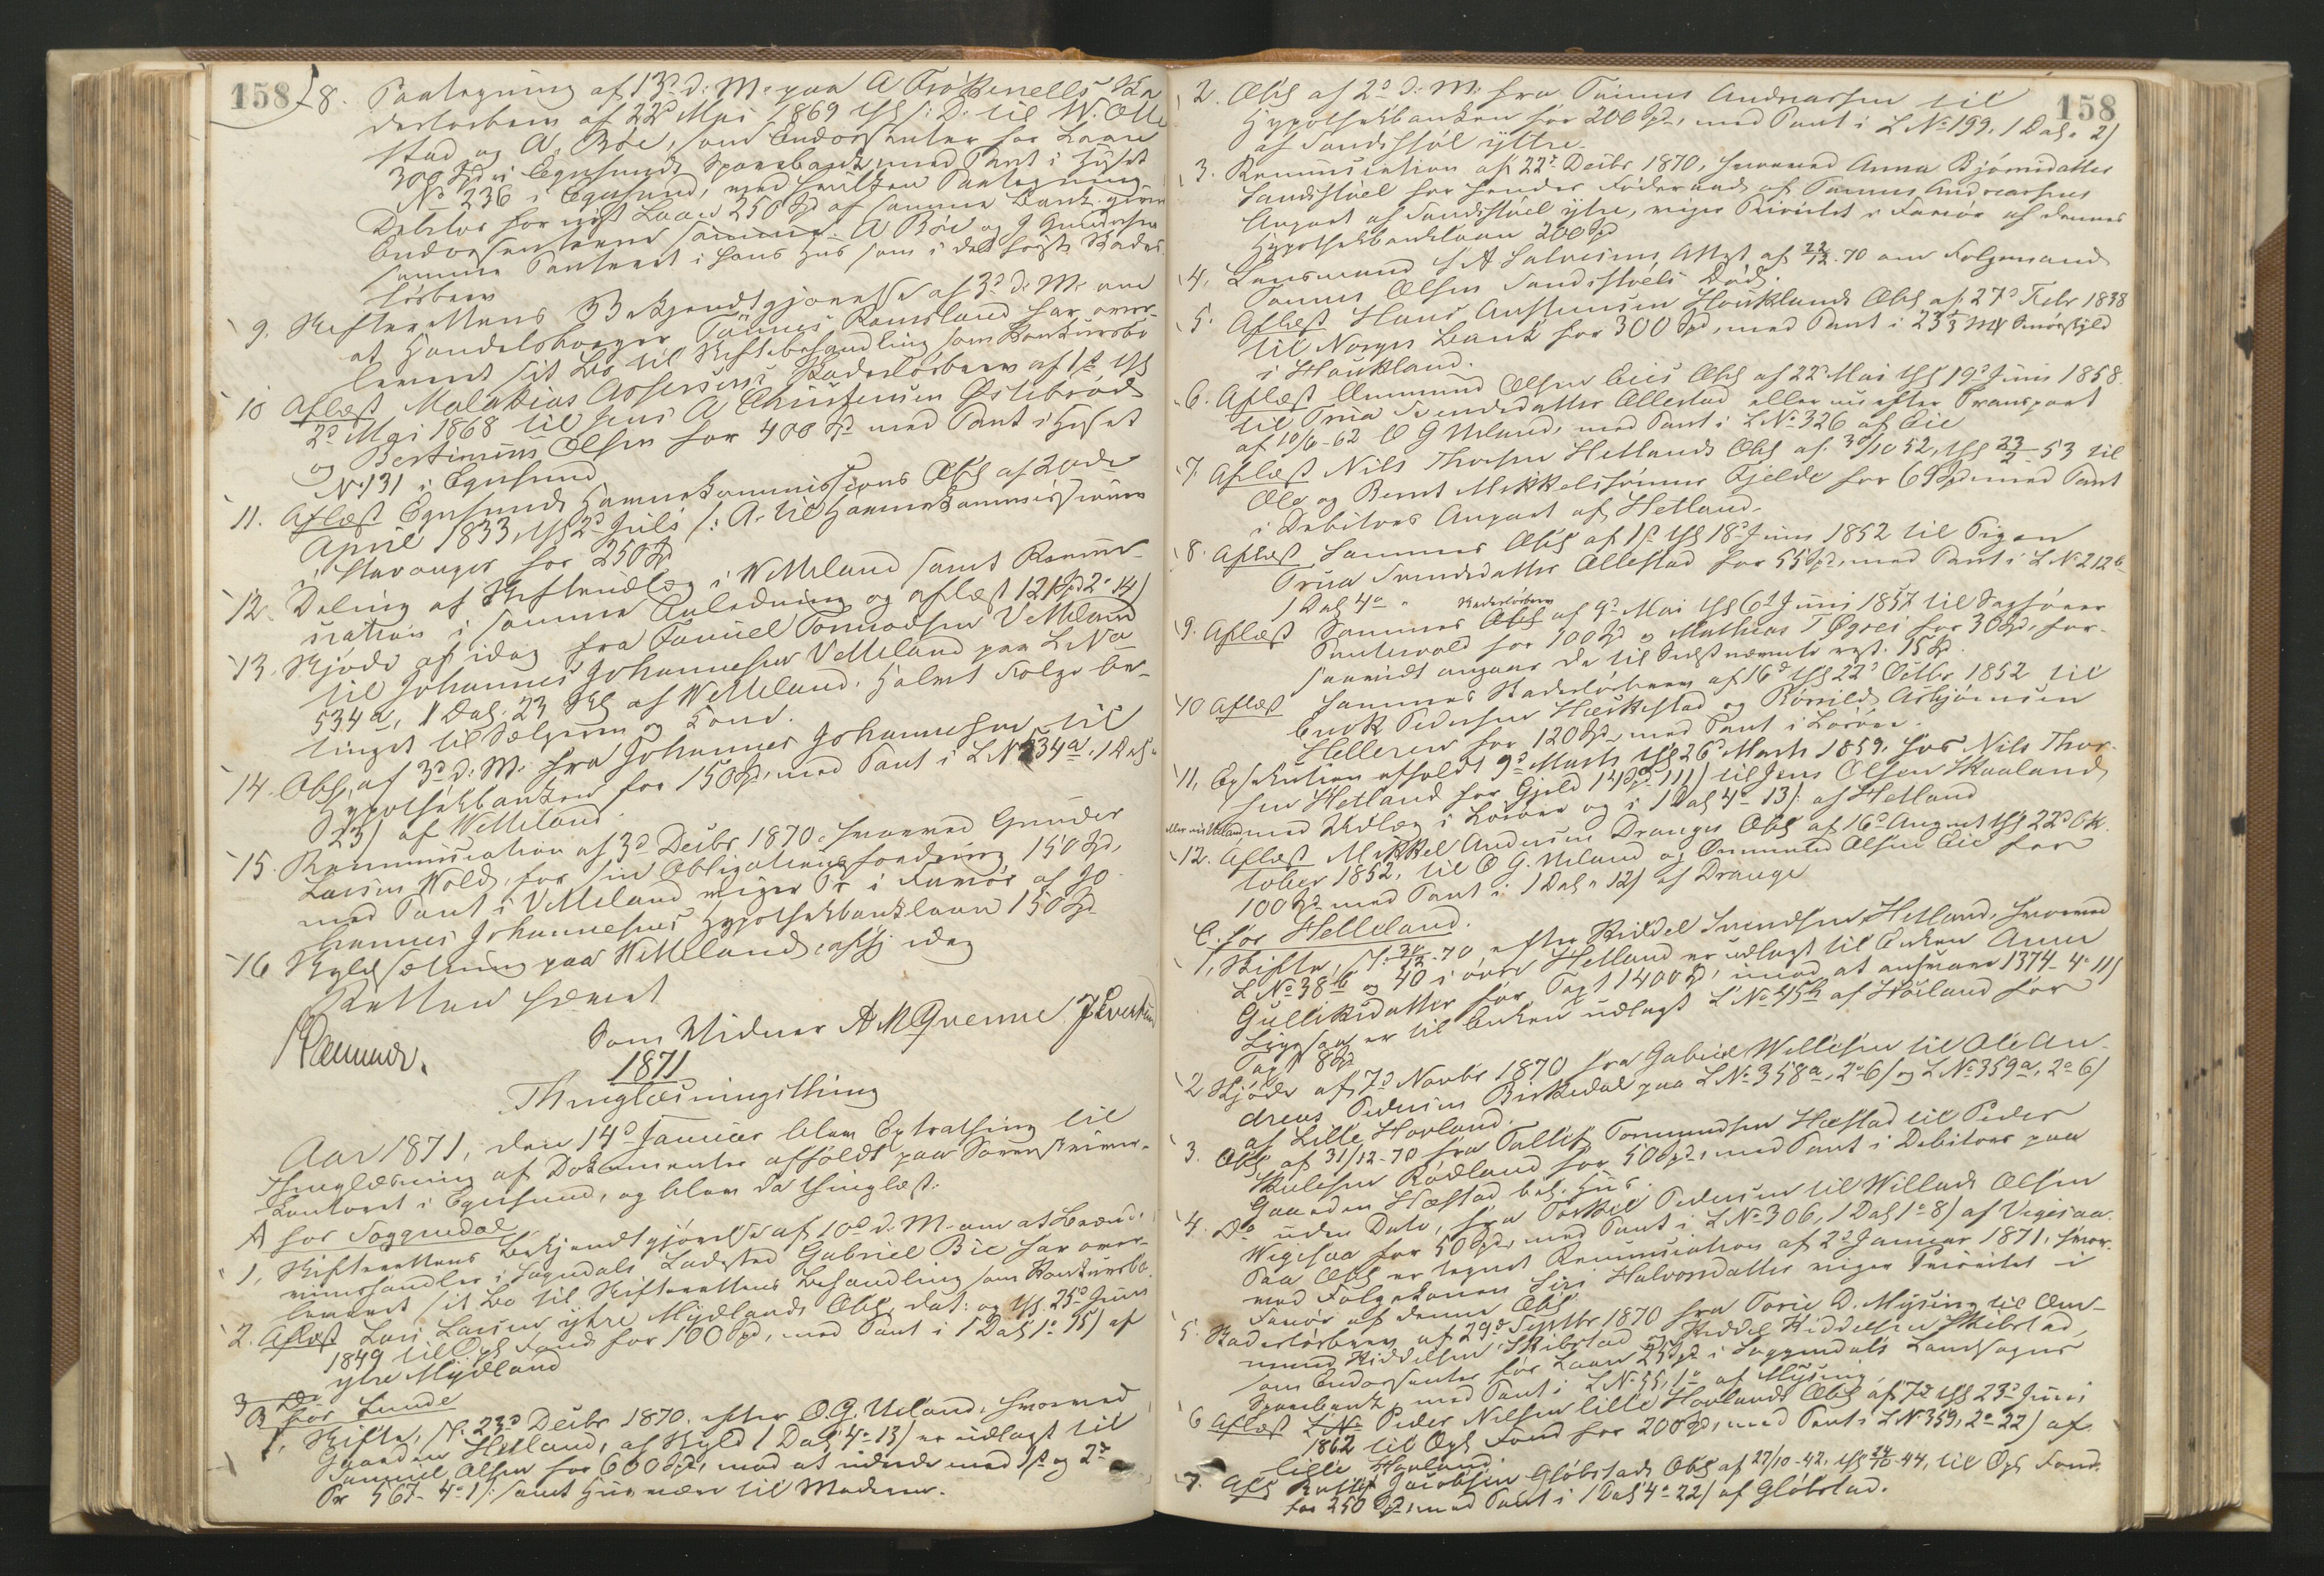 158
8. Paategning af 13d. d. M. paa A Trøkenells Ska
desløsbrev af 22d Mai 1869 thl s. D. til W. Olle
stad og A. Bøe, som Endossenter for Laan
300 Spd i Egersunds Sparebank med Pant i Huset
No 236 i Egersund, ved hvilken Paategning
Debitor for nyt Laan 250 Spd af samme Bank giver
Endossenterne A Bøe og J
samme Panteret i hans Hus som i det første Skades-
løsbrev
9. Skifterettens Bekjendtgjørelse af 3d d. M. om
at Handelsborger Tønnes Romsland har over-
leveret sit Bo til Skiftebehandling som Konkursbo
10 Aflæst Malakias Assersens Skadesløsbrev af 1st thl
2d Mai 1868 til Jens A Christensen Østebrød
og Bertinius Olsen for 400 Spd med Pant i Huset
No 131 i Egersund
11. Aflæst Egersunds Havnekommissions Obl af 2den
April 1833, thl 2d Juli s. A. til Havnekommissionen
i Stavanger for 250 Spd
12. Deling af Skifteudlæg i Wetteland samt Renun-
ciation i samme Anledning og aflæst 121 Spd 2. 14/
13. Skjøde af idag fra Samuel Tormodsen Vetteland
til Johannes Johannesen Vetteland paa L No
534a, 1 Dal. 23 Skl af Wetteland. Halvt Folge be-
tinget til Sælgeren og Kone.
14. Obl. af 3d d. M. fra Johannes Johannesen til
Hypothekbanken for 150 Spd, med Pant i L No 534a, 1 Dal "
23/ af Wetteland.
15. Renunciation af 3d Decbr 1870, hvorved Gunder
Larsen Wold, for sin Obligationsfordring 150 Spd,
med Pant i Vetteland viger Pr i Favør af Jo-
hannes Johannesens Hypothekbanklaan 150 Spd
16 Skyldsætning paa Wetteland, afhj. idag
Retten hævet
Som Vidner A M Qvenne
1871
Thinglæsningsthing
Aar 1871, den 14d Januar blev Extrathing til
Thinglæsning af Dokumenter afholdt paa Sorenskriver-
Kontoret i Egersund, og blev da thinglæst:
A for Soggendal
1, Skifterettens Bekjendtgjørelse af 10d d. M. om at Brænde-
vinshandler i Sogndals Ladested Gabriel Bie har over-
leveret sit Bo til Skifterettens Behandling som Konkursbo.
2. Aflæst Lars Larsen ytre Mydlands Obl, dat: og thl. 25d Juni
1849 til Opl Fond for 100 Spd, med Pant i 1 Dal 1. 15/ af
ytre Mydland
3
B for Lunde
1, Skifte, sl. 23d Decbr 1870. efter O. G. Ueland, hvorved
Gaarden Hetland, af Skyld 1 Dal 4. 13/ er udlagt til
Samuel Olsen for 600 Spd, mod at udrede med 1st og 2d
Pr 567- 4. 1/. samt Huusvær til Moderen.
158
2. Obl af 2d d. M. fra Tønnes Andreassen til
Hypothekbanken for 200 Spd, med Pant i L No 199, 1 Dal. 2/
af Sandstøl ytre.
3. Renunciation af 22d Decbr 1870, hvorved Anna Bjørnsdatter
Sandstøel for hendes Føderaad af Tønnes Andreassens
Anpart af Sandstøel ytre, viger Prioritet i Favør af dennes
Hypothekbanklaan 200 Spd
4. Lensmand Attest af 22/12. 70 om Folgemand
Tønnes Olsen Sandstøels Død.
5. Aflæst Hans Houklands Obl af 27d Febr 1838
til Norges Bank for 300 Spd, med Pant i 23 1/3 Mk Smørskyld
i Houkland.
6. Aflæst Ommund Olsen Eies Obl af 22d Mai thl 19d Juni 1858
til Tria Svendsdatter Ollestad eller nu efter Transport
af 10/6-62 O G Ueland, med Pant i L No 326 af Eie
7 Aflæst Nils Thorsen Hetlands Obl af 30/10 52, thl 23/2-53 til
Ole og Bernt Mikkelssønner Fjelde for 69 Spd med Pant
i Debitors Anpart af Hetland.
8. Aflæst Sammes Obl af 1st thl 18d Juni 1852 til Pigen
Tria Svendsdatter Ollestad for 55 Spd, med Pant i L No 212b
1 Dal 4o "
9. Aflæst Sammes Obl Skadesløsbrev af 9d Mai thl 6d Juni 1857 til Sagfører
for 100 Spd & Mathias T Øgrei for 30 Spd, for-
saavidt angaar de til Sidstnævnte rest. 15 Spd
10 Aflæst Sammes Skadesløsbrev af 16d thl 22d Octbr 1852 til
Enok Pedersen Hæskestad og Asbjørnsen
Helleren for 120 Spd, med Pant i Løsøre.
11, Exsekution afholdt 9d Marts thl 26d Marts 1859. hos Nils Thor-
sen Hetland for Gjeld 14 Spd 111/ til Jens Olsen Skaaland
med Udlæg i Løsøre og i 1 Dal 4. 13/. af Hetland
12. Aflæst Mikkel Andersen Dranges Obl af 16d August thl 22d Ok-
tober 1852, til O G. Ueland og Ommund Olsen Eie for
100 Spd med Pant i 1 Dal " 12/ af Drange
C. for Helleland.
1, Skifte, sl. 30/12-70 efter Kiddel Svendsen Hetland, hvorved
L No 38b og 40 i øvre Hetland er udlagt til Enken Anne
Gulliksdatter for Taxt 1400 Spd, imod at ansvare 1374- 4. 11/
Ligesaa er til Enken udlagt L No 45b af Høiland for
Taxt 8 Spd
2 Skjøde af 7d Novbr 1870 fra Gabriel Willesen til Ole An-
dreas Pedersen Birkedal paa L No 358a, 2o 6/ og L No 359a, 2o 6/
af Lille Hovland.
3. Obl af 31/12-70 fra Tollef Tormundsen Hæstad til Peder
Skulesen Rødland for 50 Spd, med Pant i Debitors paa
Gaarden Hæstad bel. Huus.
4. Do uden Dato, fra Torkel Pedersen til Willads Olsen
Wegesaa for 50 Spd, med Pant i L No 306, 1 Dal 1o 8/ af Vigesaa.
Paa Obl er tegnet Renunciation af 2d Januar 1871, hvor-
ved Folgekonen Siri Halvorsdatter viger Prioritet i
Favør af denne Obl.
5. Skadesløsbrev af 29d Septbr 1870 fra Torie D. Mysing til Om-
mund Kiddelsen Skibstad og Kiddel Kiddelsen Skibstad,
som Endossenter for Laan 25 Spd i Soggendals Landsogns
Sparebank, med Pant i L No 55, 1o af Mysing,
6 Aflæst L No Peder Nilsen lille Hovlands Obl af 7d thl 23d Juni
1862 til Opl Fond for 200 Spd, med Pant i L No 359, 2o 22/ af
lille Hovland.
7. Afl Jacobsen Gløbstads Obl af 27/10-42. thl 24/10-44, til Opl Fond
for 250 Spd, med Pant i 1 Dal 4o 22/ af Gløbstad.